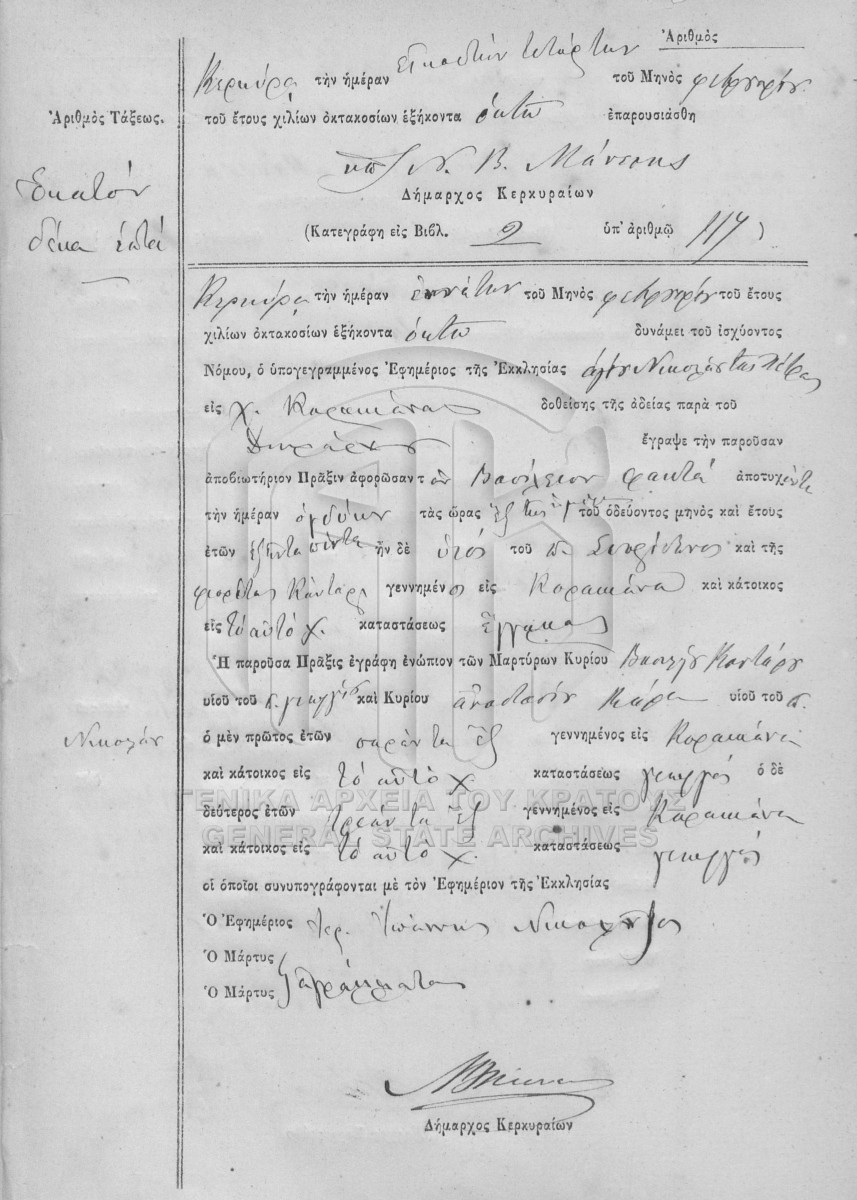 Ἀριθμὸς
Κερκύρᾳ τὴν ἡμέραν εἰκοστὴν τετάρτην τοῦ Μηνὸς φεβρουαρίου
Ἀριθμὸς Τάξεως.
τοῦ ἔτους χιλίων ὀκτακοσίων ἑξήκοντα ὀκτὼ ἐπαρουσιάσθη
Ν. Β. Μάνεσης
Ἑκατὸν
Δήμαρχος Κερκυραίων
δέκα ἑπτά
(Κατεγράφη εἰς Βιβλ. 2 ὑπ' ἀριθμῷ 117)
Κερκύρᾳ τὴν ἡμέραν ἐννάτην τοῦ Μηνὸς φεβρουαρίου τοῦ ἔτους
χιλίων ὀκτακοσίων ἑξήκοντα ὀκτὼ δυνάμει τοῦ ἰσχύοντος
Νόμου, ὁ ὑπογεγραμμένος Ἐφημέριος τῆς Ἐκκλησίας ἁγίου Νικολάου
εἰς χ. Κορακιάνας δοθείσης τῆς ἀδείας παρὰ τοῦ
Δημάρχου ἔγραψε τὴν παροῦσαν
ἀποβιωτήριον Πρᾶξιν ἀφορῶσαν τὸν Βασίλειον ἀποτυχόντα
τὴν ἡμέραν ὀγδόην τὰς ὥρας ἓξ τοῦ ὁδεύοντος μηνὸς καὶ ἔτους
ἐτῶν ἑξῆντα πέντε ἦν δὲ υἱὸς τοῦ π. Σπυρίδωνος καὶ τῆς
γεννημένος εἰς Κορακιάνα καὶ κάτοικος
εἰς τὸ αὐτὸ χ. καταστάσεως ἔγγαμος
Ἡ παροῦσα Πρᾶξις ἐγράφη ἐνώπιον τῶν Μαρτύρων Κυρίου Βασιλείου Κοντάρη
υἱοῦ τοῦ π. γεωργίου καὶ Κυρίου ἀναστασίου υἱοῦ τοῦ π.
Νικολάου
ὁ μὲν πρῶτος ἐτῶν σαράντα ἓξ γεννημένος εἰς Κορακιάνα
καὶ κάτοικος εἰς τὸ αὐτὸ χ. καταστάσεως γεωργός ὁ δὲ
ΓΕΝΙΚΑ ΑΡΧΕΙΑ ΤΟΥ ΚΡΑΤΟΥΣ
δεύτερος ἐτῶν τριάντα ἓξ γεννημένος εἰς Κορακιάνα
GENERAL STATE ARCHIVES
καὶ κάτοικος εἰς τὸ αὐτὸ χ. καταστάσεως γεωργός
οἱ ὁποῖοι συνυπογράφονται μὲ τὸν Ἐφημέριον τῆς Ἐκκλησίας
Ὁ Ἐφημέριος Ἱερ. Ἰωάννης
Ὁ Μάρτυς
ἀγράμματοι
Ὁ Μάρτυς
Δήμαρχος Κερκυραίων